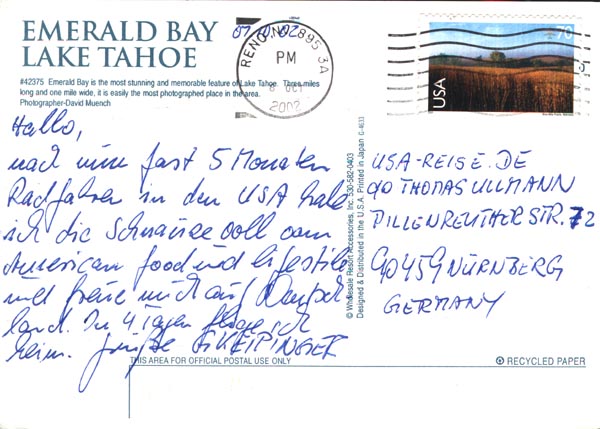 EMERALD BAY
LAKE TAHOE
#42375 Emerald Bay is the most stunning and memorable feature of Lake Tahoe. Three miles
long and one mile wide, it is easily the most photographed place in the area.
Photographer-David Muench
RENO, NV 895 3A
PM
OCT
2002
70
USA
Hallo,
nach nun fast 5 Monaten
Radfahren in den USA habe
ich die Schnauze voll vom
American food und lifestile
und freue mich auf Deutsch
land. In 4 Tagen fliege ich
heim. Grüße
© Wholesale Resort Accessories, Inc. 530-582-0403
Designed & Distributed in the U.S.A. Printed in Japan C-4633
USA-REISE.DE
c/o THOMAS ULLMANN
DILLENREUTHER STR. 72
90459 NÜRNBERG
GERMANY
THIS AREA FOR OFFICIAL POSTAL USE ONLY
RECYCLED PAPER